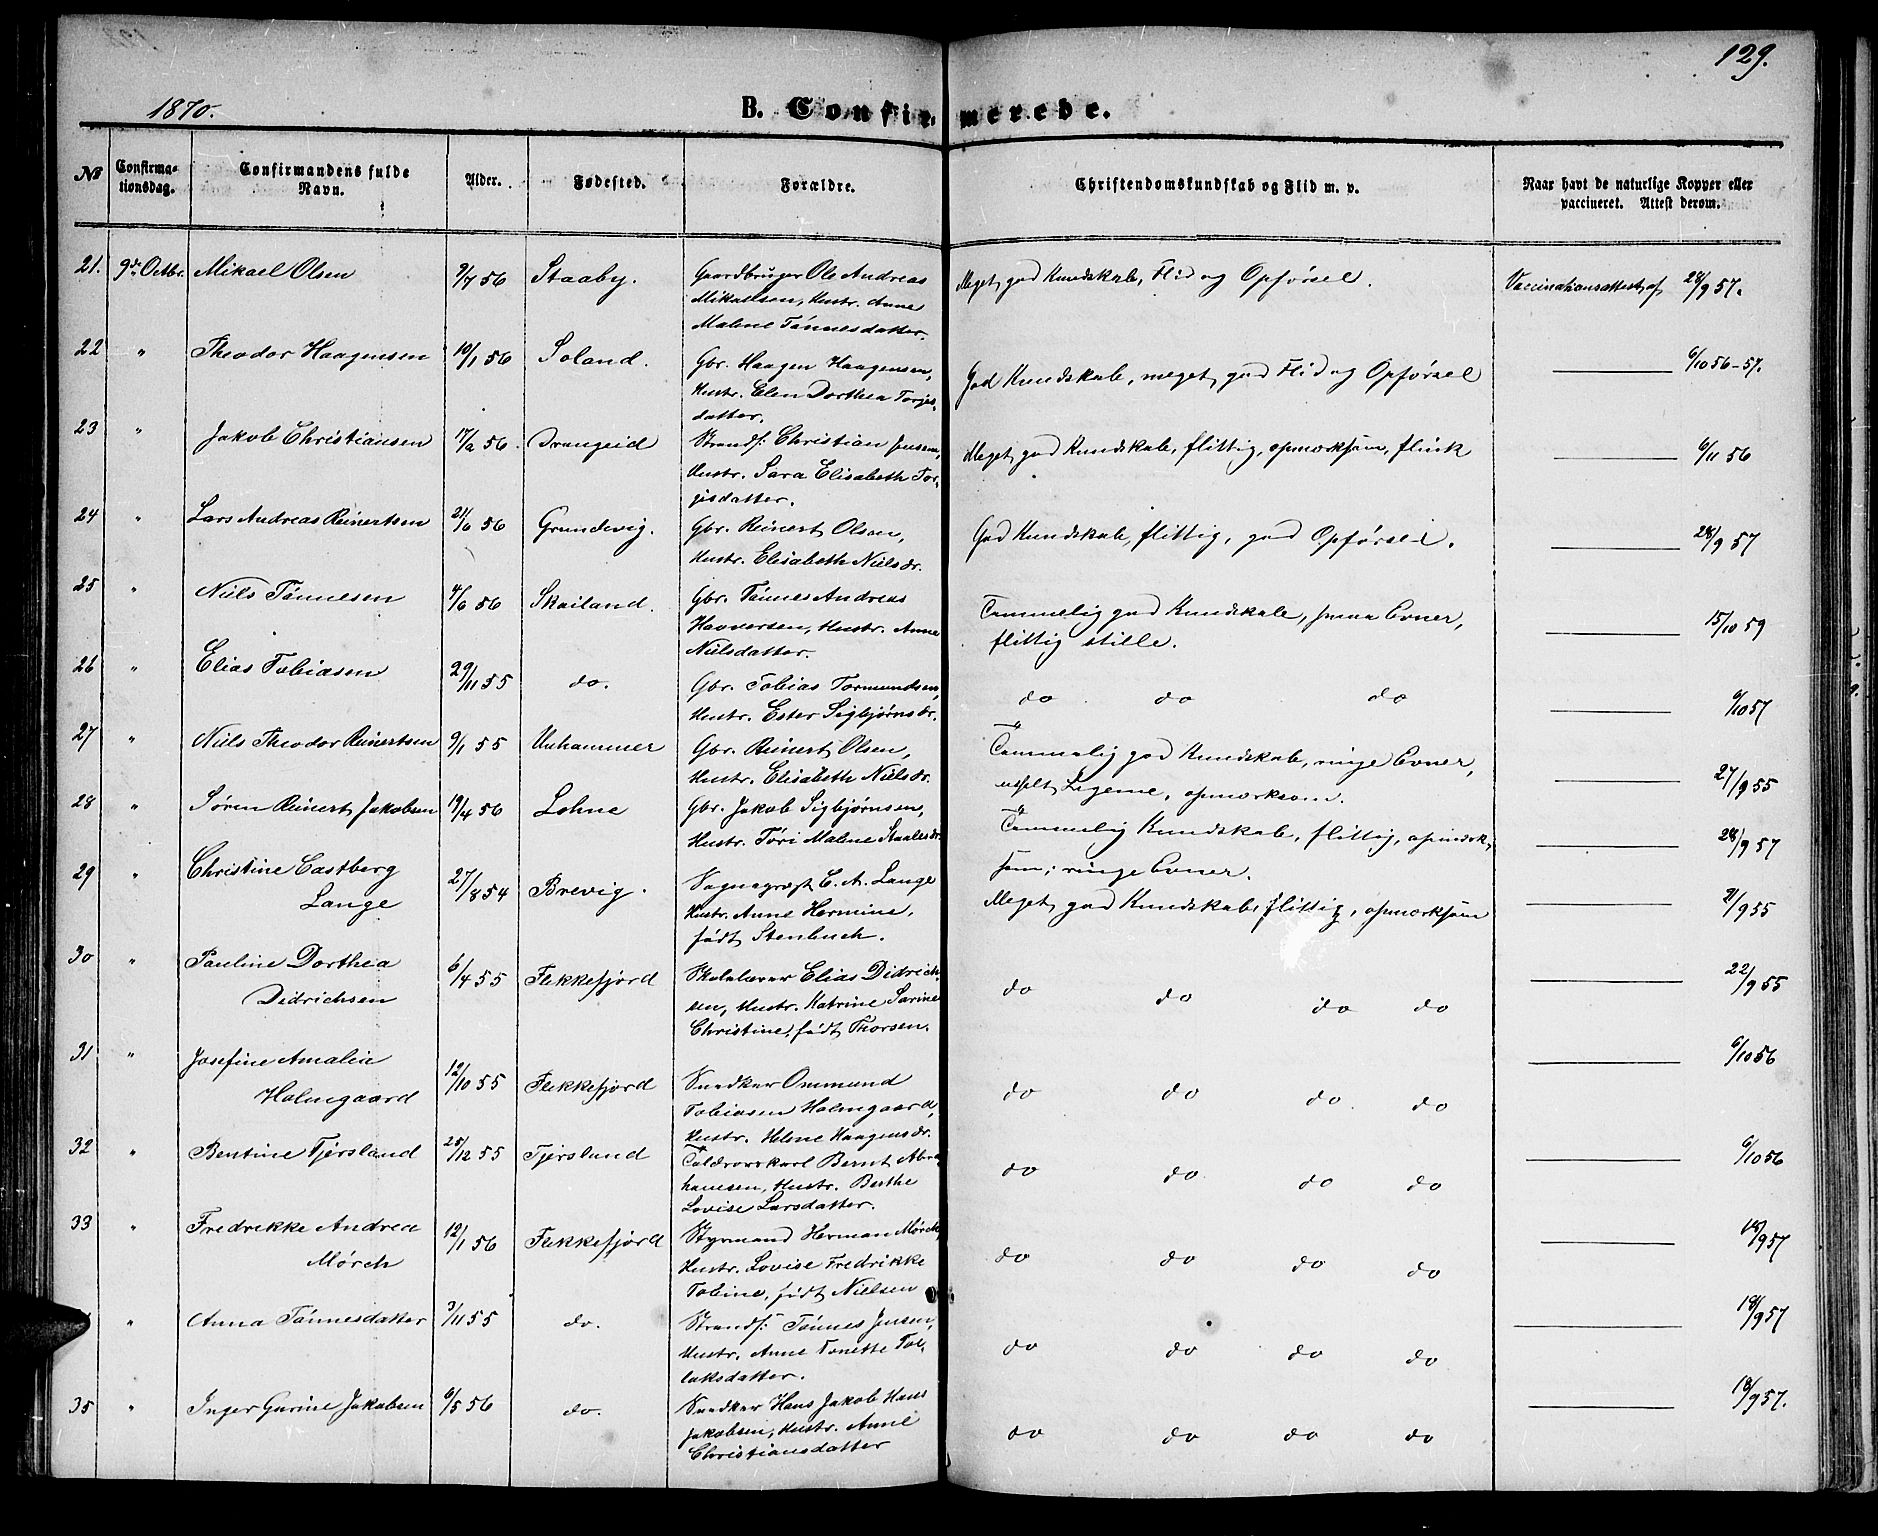 129.
1870.
B. Confirmerede.
№
Confirmationsdag.
Confirmandens fulde Navn.
Alder.
Fødested.
Forældre.
Christendomskundskab og Flid m. v.
Naar havt de naturlige Kopper eller vaccineret. Attest derom.
21. 9de Octbr. Mikael Olsen 9/7 56 Staaby. Gaardbruger Ole Andreas
Mikaelsen, Hustr. Anne
Malene Tönnesdatter.
Meget god Kundskab, Flid og Opförsel. Vaccinationsattest af 28/9 57.
22 " Theodor Haagensen 10/1 56 Soland. Gbr. Haagen Haagensen,
Hustr. Elen Dorthea Torjes-
datter.
God Kundskab, meget god Flid og Opförsel 6/10 56-57.
23 " Jakob Christiansen 17/2 56. Drangeid Strandf: Christian Jensen,
Hustr. Sara Elisabeth Tor-
jesdatter.
Meget god Kundskab, flittig, opmærksom, flink 6/11 56
24 " Lars Andreas Reinertsen 21/6 56 Grundevig. Gbr. Reinert Olsen,
Hustr. Elisabeth Nielsdr.
God Kundskab, flittig, god Opförsel. 28/9 57
25 " Niels Tönnesen 4/6 56 Skailand. Gbr. Tönnes Andreas
Haaversen, Hustr. Anne
Nielsdatter.
Temmelig god Kundskab, smaa Evner,
flittig stille. 15/10 59
26 " Elias Tobiasen 29/11 55 do. Gbr. Tobias Tormundsen,
Hustr. Ester Sigbjørnsdr.
do do do 6/10 57
27 " Niels Theodor Reinertsen 9/1 55 Unhammer Gbr. Reinert Olsen,
Hustr. Elisabeth Nielsdr.
Temmelig god Kundskab, ringe Evner,
Legeme, opmærksom. 27/9 55
28 " Søren Reinert Jakobsen 19/4 56 Lohne Gbr. Jakob Sigbjørnsen,
Hustr. Töri Malene Staalesdr.
Temmelig Kundskab, flittig, opmærk-
som; ringe Evner. 28/9 57
29 " Christine Castberg
Lange 27/8 54 Brevig. Sogneprest C. A. Lange
Hustr. Anne Hermine,
født Stenbuch.
Meget god Kundskab, flittig, opmærksom 21/9 55
30 " Pauline Dorthea
Didrichsen 6/4 55 Flekkefjord Skolelærer Elias Didrich-
sen, Hustr. Katrine Sarine
Christine, født Thorsen.
do do do do 22/9 55
31 " Josefine Amalia
Holmgaard 12/10 55 Flekkefjord Snedker Ommund
Tobiasen Holmgaard,
Hustr. Helene Haagensdr.
do do do do 6/10 56
32 " Bentine Tjørsland 25/12 55 Tjørsland Toldrorskarl Bernt Abra-
hamsen, Hustr. Berthe
Lovise Larsdatter.
do do do do 6/10 56
33 " Fredrikke Andrea
Mørch 12/1 56 Flekkefjord Styrmand Herman Mørch,
Hustr. Lovise Fredrikke
Tobine, født Nielsen
do do do do 18/9 57
" Anna Tönnesdatter 3/11 55 do. Strandf: Tönnes Jensen,
Hustr. Anne Tonette Tol-
laksdatter.
do do do do 18/9 57
35 " Inger Gurine Jakobsen 6/5 56 do. Snedker Hans Jakob Hans
Jakobsen, Hustr. Anne
Christiansdatter
do do do do 18/9 57.